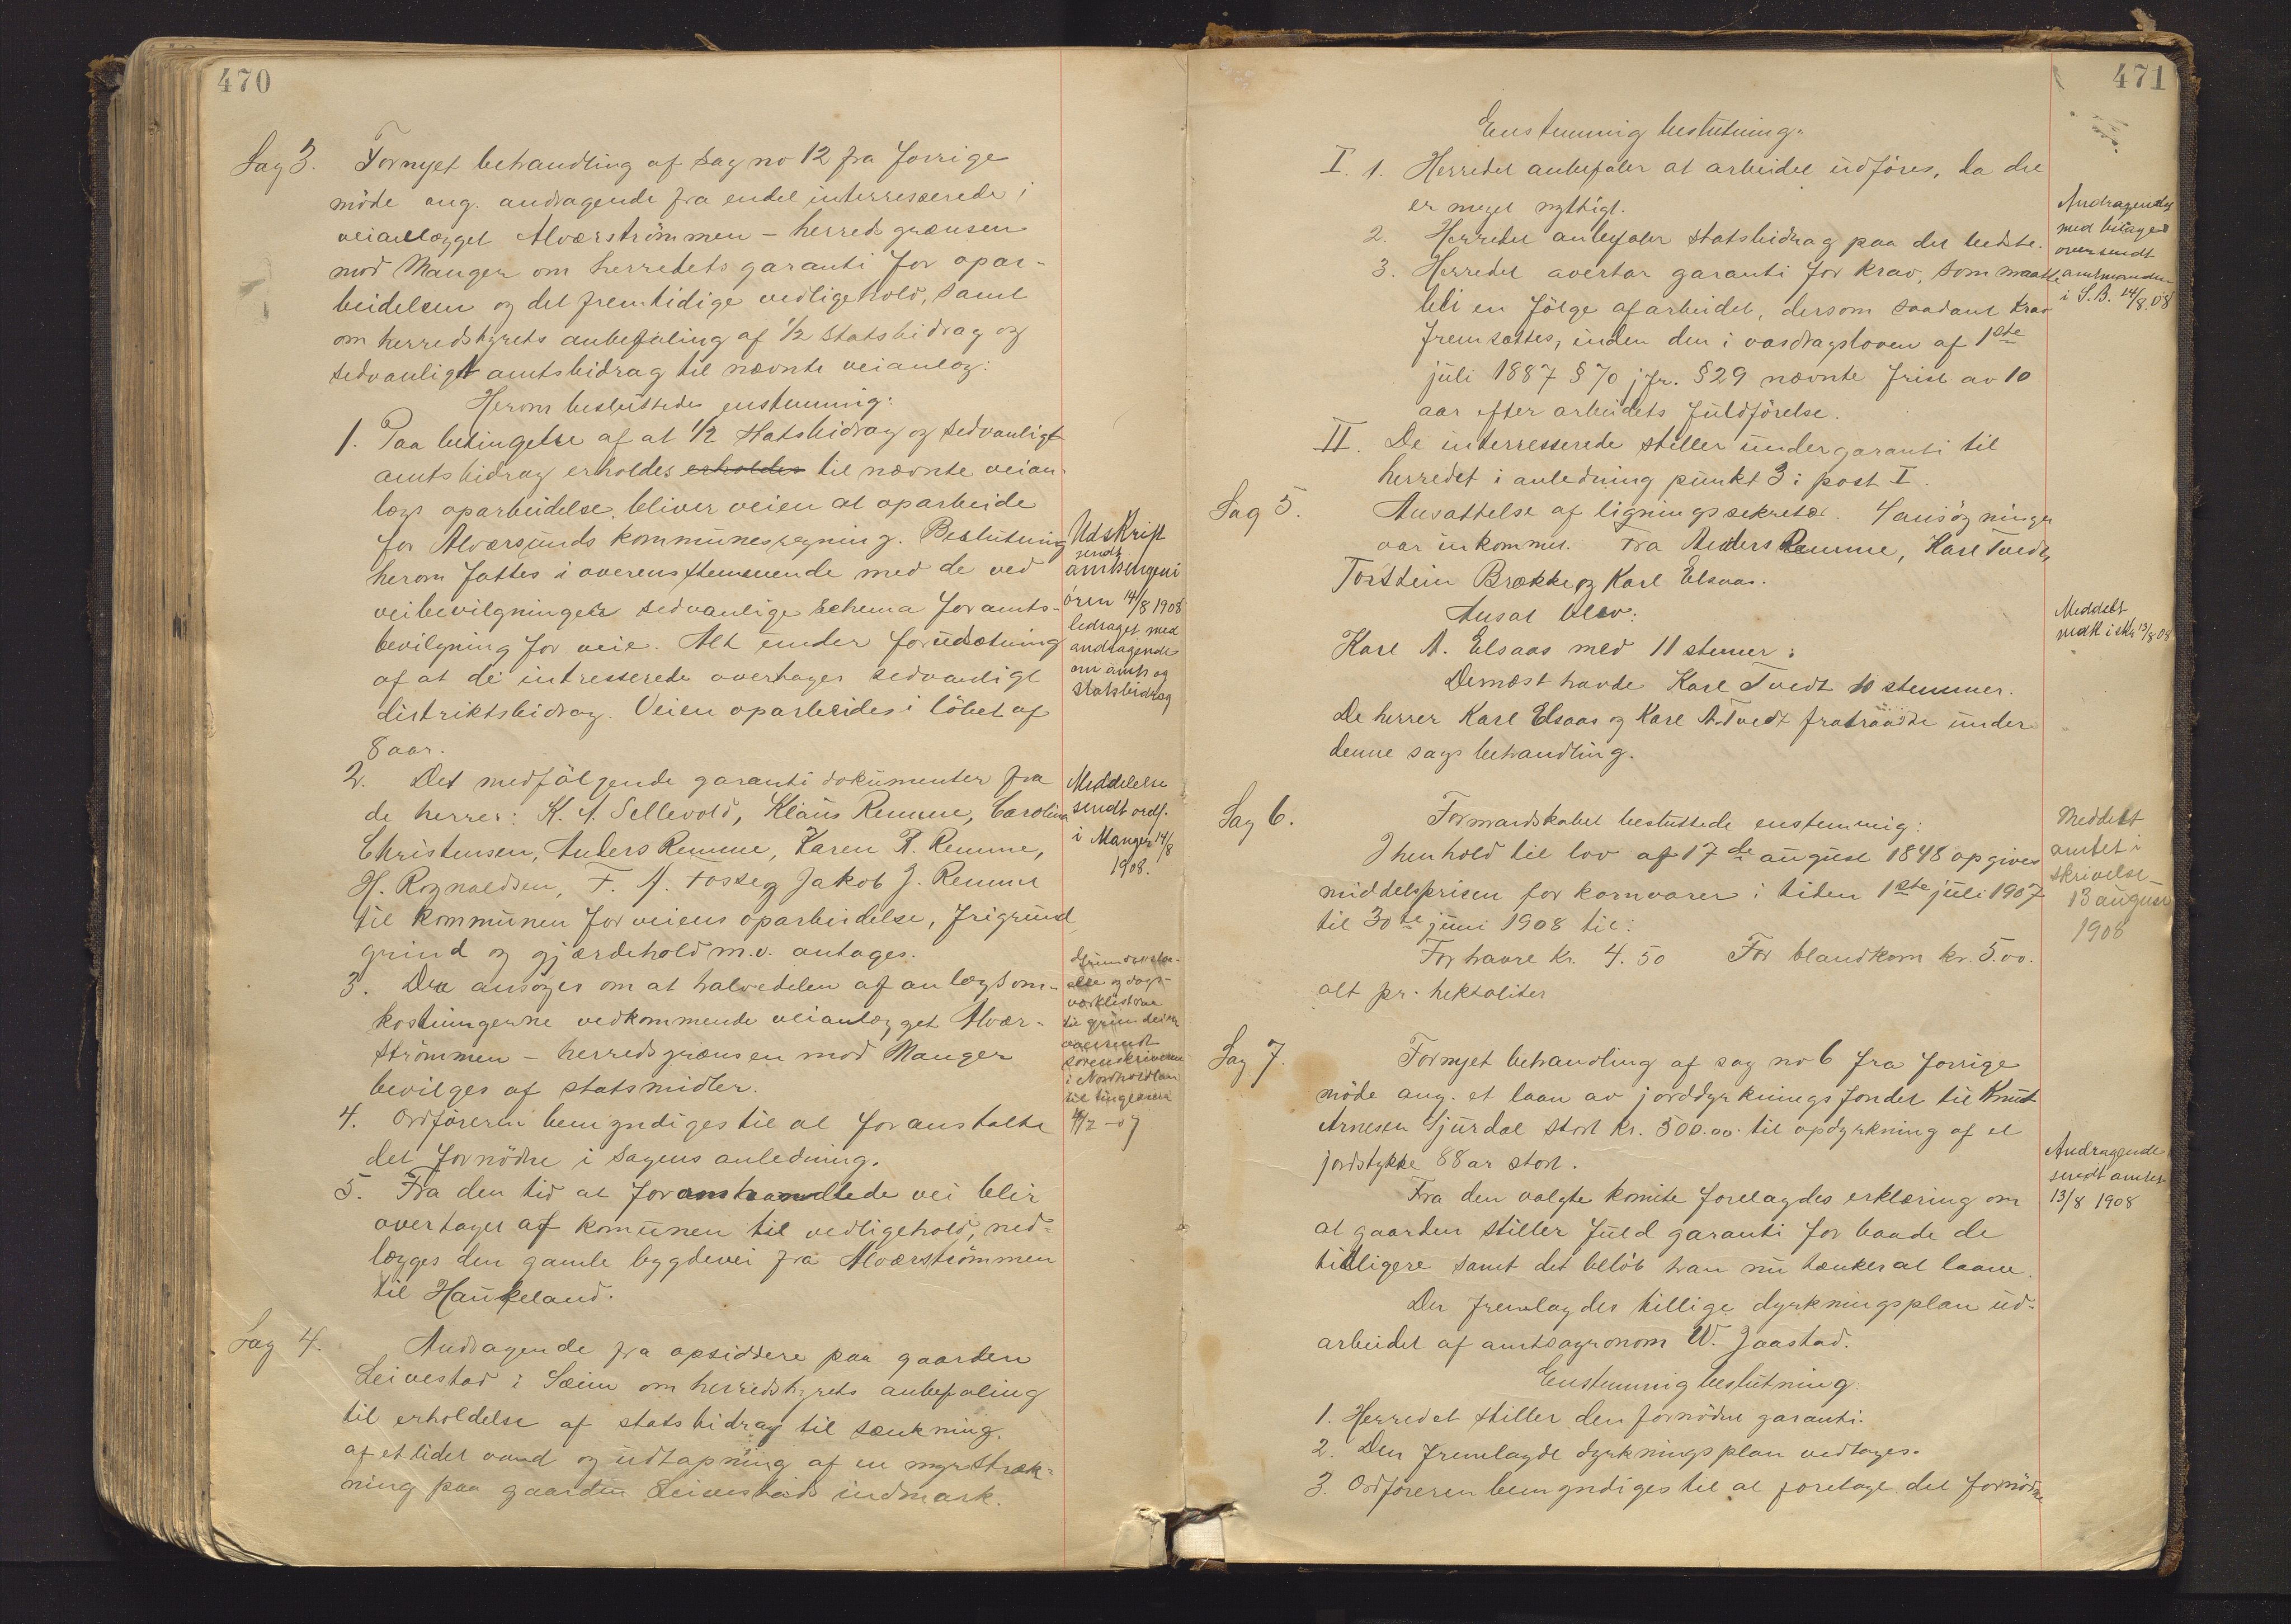 470
Sag 3. Fornyet behandling af sag no 12 fra forrige
möde ang. andragende fra endel interresserede i
veianlægget Alværströmmen - herredsgrænsen
mod Manger om herredets garanti for opar-
beidelsen og det fremtidige vedligehold, samt
om herredstyrets anbefaling af 1/2 statsbidrag og
sedvanligt amtsbidrag til nævnte veianlæg:
Herom besluttedes enstemmig:
1. Paa betingelse af at 1/2 statsbidrag og sedvanligt
amtsbidrag erholdes erholdes til nævnte veian-
lægs oparbeidelse, bliver veien at oparbeide
for Alværsunds kommunesregning. Beslutning
herom fattes i overensstemmende med de ved
veibevilgninger sedvanlige schema for amts-
bevilgning for veie. Alt under forudsætning
af at de intresserede overtager sedvanligt
distriktsbidrag. Veien oparbeides i löbet af
8 aar.
2. Det medfölgende garanti dokumenter fra
de herrer: K. A. Sellevold, Klaus Remme, Carolina
Christensen, Anders Remme, Karen R. Remme,
H. Rognaldsen, F. J. Fosse og Jakob J. Remme
til kommunen for veiens oparbeidelse, frigrund,
grind og gjærdehold m.v. antages.
3. Der ansöges om at halvedelen af anlægsom-
kostningerne vedkommende veianlægget Alvær-
strömmen - herredsgrænsen mod Manger
bevilges af statsmidler.
4. Ordföreren bemyndiges til at foranstalte
det fornödne i sagens anledning.
5. Fra den tid at foranstaaende vei blir
overtaget af komunen til vedligehold, ned-
lægges den gamle bygdevei fra Alværströmmen
til Haukeland.
Sag 4. Andragende fra opsiddere paa gaarden
Leivestad i Sæim om herredstyrets anbefaling
til erholdelse af statsbidrag til sænkning.
af et lidet vand og udtapning af en myrstræk-
ning paa gaarden Leivestads indmark.
Udskrift
sendt
amtsingeni
ören 14/8 1908
ledsaget med
andragende
om amts og
statsbidrag
Meddelelse
sendt ordf.
i Manger 14/8
1908.
og dags-
værklisterne
oversendt
sorenskriveren
i Nordhordland
til tinglæsen
471
Enstemmig beslutning:
I. 1. Herredet anbefaler at arbeidet udföres, da det
er meget nyttigt.
2. Herredet anbefaler statsbidrag paa det bedste.
3. Herredet overtar garanti for krav, som maatte
bli en fölge af arbeidet, dersom saadant krav
fremsættes, inden den i vasdragsloven af 1ste
juli 1887 § 70 jfr. § 29 nævnte frist av 10
aar efter arbeidets fuldförelse.
II. De interresserede stiller undergaranti til
herredet i anledning punkt 3 i post I.
Sag 5. Ansættelse af ligningssekretær. 4 ansögninger
var inkommet. Fra Anders Remme, Karl Tvedt,
Torstein Brække og Karl Elsaas.
Ansat blev:
Karl A. Elsaas med 11 stemer:
Dernæst havde Karl Tvedt 10 stemmer.
De herrer Karl Elsaas og Karl A. Tvedt fratraadte under
denne sags behandling.
Sag 6. Formandskabet besluttede enstemmig:
I henhold til lov af 17de august 1848 opgives
middelsprisen for kornvarer i tiden 1ste juli 1907
til 30te juni 1908 til:
For havre kr. 4.50 For blandkorn kr. 5.00.
alt pr. hektoliter
Sag 7. Fornyet behandling af sag no 6 fra forrige
möde ang. et laan av jorddyrkningsfondet til Knut
Arnesen Gjurdal stort kr. 300.00 til opdyrkning af et
jordstykke 88 ar stort.
Fra den valgte komite forelagdes erklæring om
at gaarden stiller fuld garanti for baade de
tidligere samt det belöb han nu tænker at laane.
Der fremlagdes tillige dyrkningsplan ud-
arbeidet af amtsagronom W. Jaastad.
Enstemmig beslutning:
1. Herredet stiller den fornödne garanti.
2. Den fremlagde dyrkningsplan vedtages.
3. Ordföreren bemyndiges til at foretage det fornödne
Andragendet
med bilage
oversendt
amtmanden
i S.B. 14/8.08
Meddelt
vedk i skr 13/8 08
Meddelt
amtet i
skrivelse
13 august
1908
Andragende
sendt amtet
13/8 1908